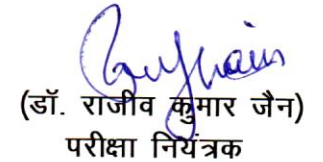 (डॉ. राजीव कुमार जैन)
परीक्षा नियंत्रक